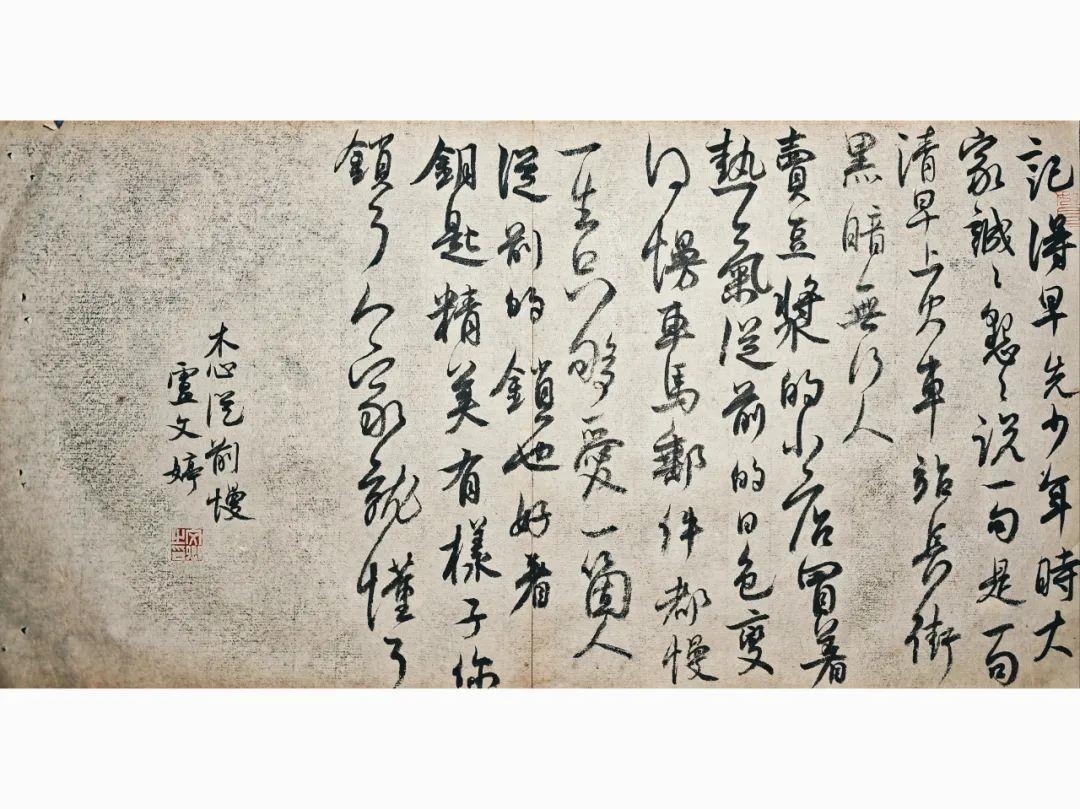 記得早先少年時大
家誠〻懇〻説一句是一句
清早上火車站長街
黒暗無行人
賣豆漿的小店冒着
熱〻氣從前的日色變
得慢車馬郵件都慢
一生只够愛一箇人
從前的鎖也好看
鈅匙精美有樣子你
鎖了人家就懂了
木心從前慢
盧文婷